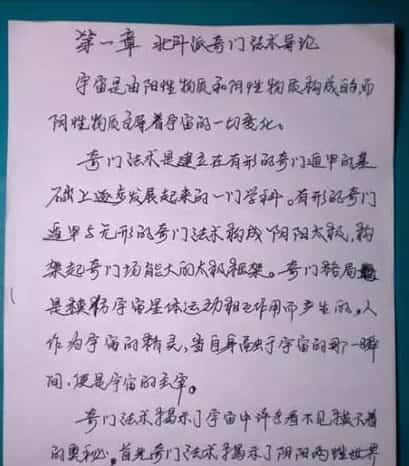 第一章 北斗派奇门法术导论
宇宙是由阳性物质和阴性物质构成的,而
阴性物质主导着宇宙的一切变化。
奇门法术是建立在有形的奇门遁甲的基
础上逐步发展起来的一门学科。有形的奇门
遁甲与无形的奇门法术构成阴阳太极,构
架起奇门场能大的太极框架。奇门格局
是模仿宇宙星体运动相互作用而产生的。人
作为宇宙的精灵,当自身融于宇宙的那一瞬
间,便是宇宙的主宰。
奇门法术揭示了宇宙中许多看不见摸不着
的奥秘。首先奇门法术揭示了阴阳两性世界